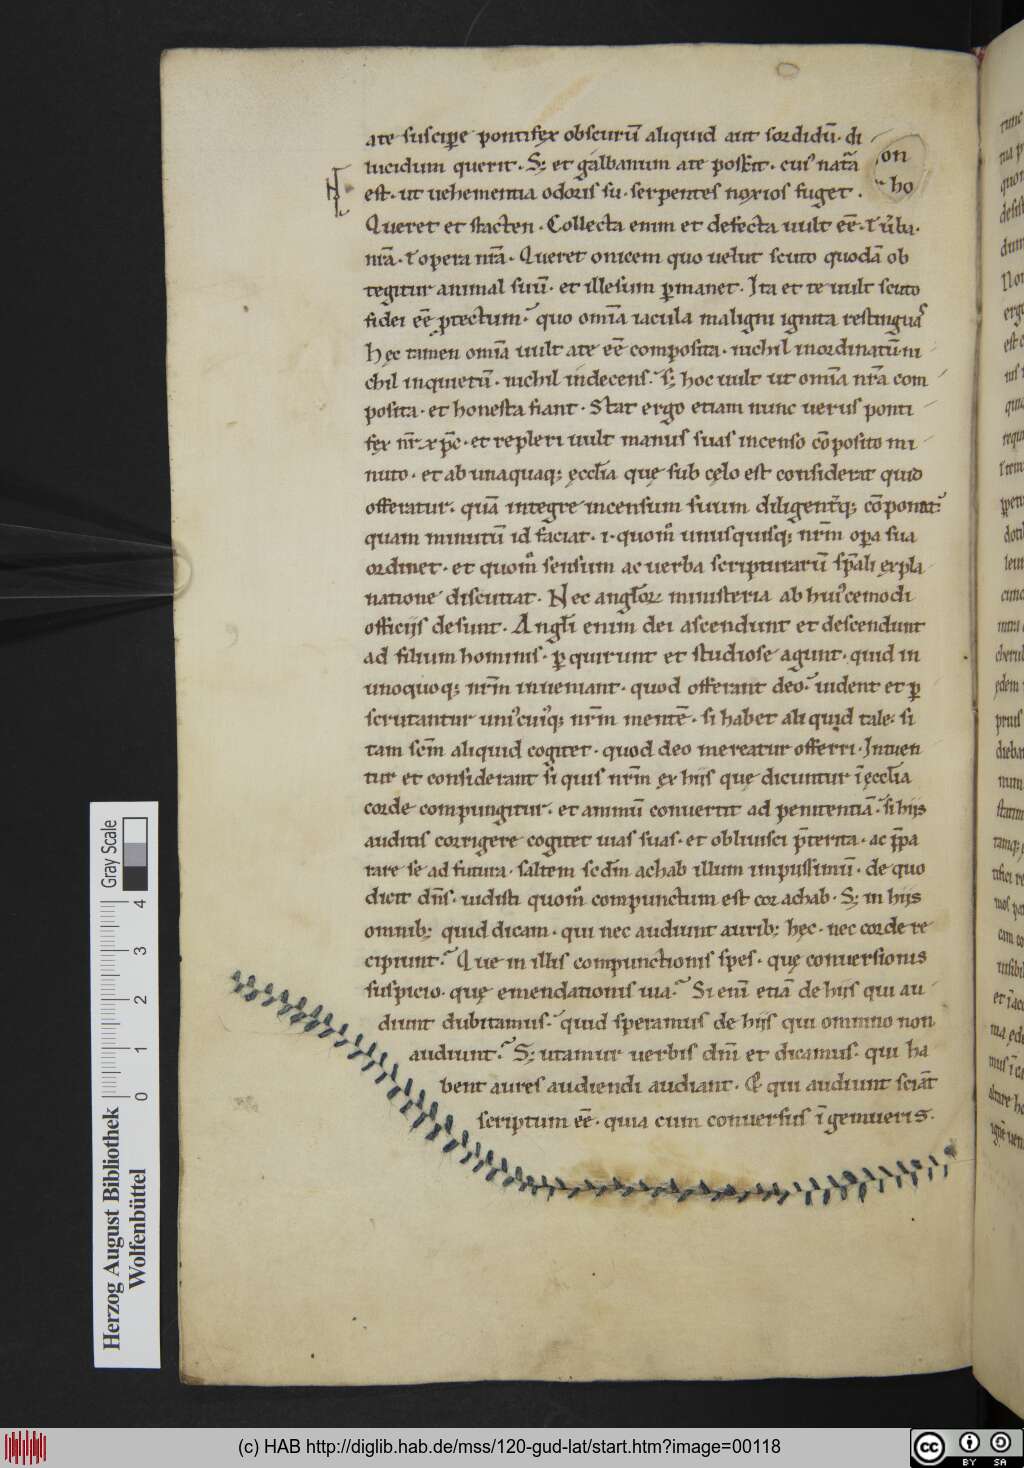 ate suscipe pontifex obscurū aliquid aut sordidū· di
lucidum querit· Sꝫ et galbanum ate poscit· cui᾽ natā
est· ut uehementia odoris su· serpentes noxios fuget·
Queret et stacten· Collecta enim et defecta uult eē· ł u̾ba·
nrā· ł opera nrā· Queret onicem quo uelut scuto quodā ob
tegitur animal suū· et illesum ꝑmanet· Ita et te uult scuto
fidei eē ꝓtectum· quo omīa iacula maligni ignita restinguas
hęc tamen omīa uult ate eē composita· nichil inordinatū ni
chil inquietū· nichil indecens· sꝫ hoc uult ut omīa nrā com
posita· et honesta fiant· Stat ergo etiam nunc uerus ponti
fex nr̄ xp̄c· et repleri uult manus suas incenso cōposito mi
nuto· et ab unaquaqꝫ ęccłia que sub cęlo est considerat quid
offeratur· quā integre incensum suum diligent̾qꝫ cōponat·
quam minutū id faciat· i· quom̊ unusquisqꝫ nrm̄ opa sua
ordinet· et quom̊ sensum ac uerba scripturarū sp̄ali expla
natione discutiat· Nec angłoꝝ ministeria ab hui᾽cemodi
officijs desunt· Angłi enim dei ascendunt et descendunt
ad filium hominis· ꝑquirunt et studiose agunt· quid in
unoquoqꝫ nrm̄ inueniant· quod offerant deo· uident et ꝑ
scrutantur uni᾽cui᾽qꝫ nrm̄ mentē· si habet aliquid tale· si
tam scm̄ aliquid cogitet· quod deo mereatur offerri· Intuen
tur et considerant si quis nrm̄ ex hijs que dicuntur ī ęccłia
corde compungitur· et animū conuertit ad penitentiā· si hijs
auditis corrigere cogitet uias suas· et obliuisci p̄terita· ac p̄pa
rare se ad futura· saltem scdm̄ achab illum impiissimū· de quo
dicit dn̄s· uidisti quom̊ compunctum est cor achab· Sꝫ in hijs
omnibꝫ quid dicam· qui nec audiunt auribꝫ hęc· nec corde re
cipiunt· Que in illis compunctionis spes· quę conuersionis
suspicio· quę emendationis uia· Si enī etiā de hijs qui au
diunt dubitamus· quid speramus de hijs qui omnino non
audiunt· Sꝫ utamur uerbis dnī et dicamus· qui ha
bent aures audiendi audiant· Et qui audiunt sciāt
scriptum eē· quia cum conuersus īgemueris·
on
ho
Gray Scale
0 1 2 3 4
Herzog August Bibliothek
Wolfenbüttel
(c) HAB http://diglib.hab.de/mss/120-gud-lat/start.htm?image=00118
cc BY SA